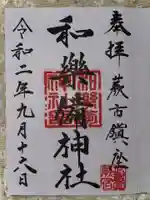 奉拝 蕨市鎮座
和樂備神社
令和二年九月十六日